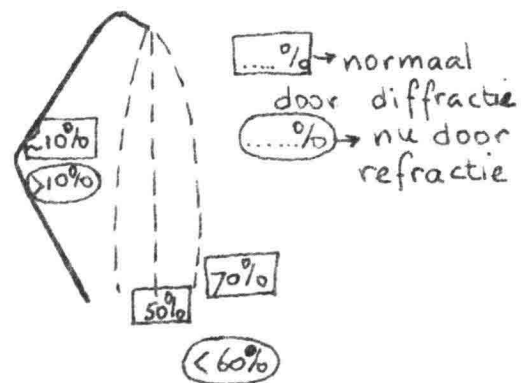 .....% → normaal
door diffractie
.......% → nu door
refractie
~10%
>10%
70%
50%
<60%